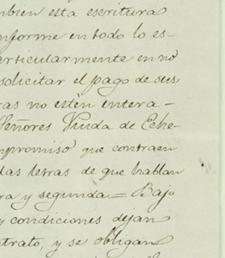 mbien esta escritura
nforme en todo lo es-
articularmente en no
solicitar el pago de sus
ras no estén intera-
Señores Viuda de Eche-
mpromiso que contraen
das letras de que hablan
ra y segunda = Bajo
y condiciones dejan
trato, y se obligan